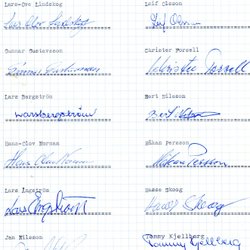 Lars-Ove Lindskog Leif Olsson
Lars Ove Lindskog Leif Olsson
Gunnar Gustavsson Christer Forsell
Gunnar Gustavsson Christer Forsell
Lars Bergström Bert Nilsson
Lars Bergström Bert Nilsson
Hans-Olov Norman Håkan Persson
Håkan Persson
Lars Engström Hasse Skoog
Lars Engström Hasse Skoog
Jan Nilsson Tommy Kjellberg
Tommy Kjellberg